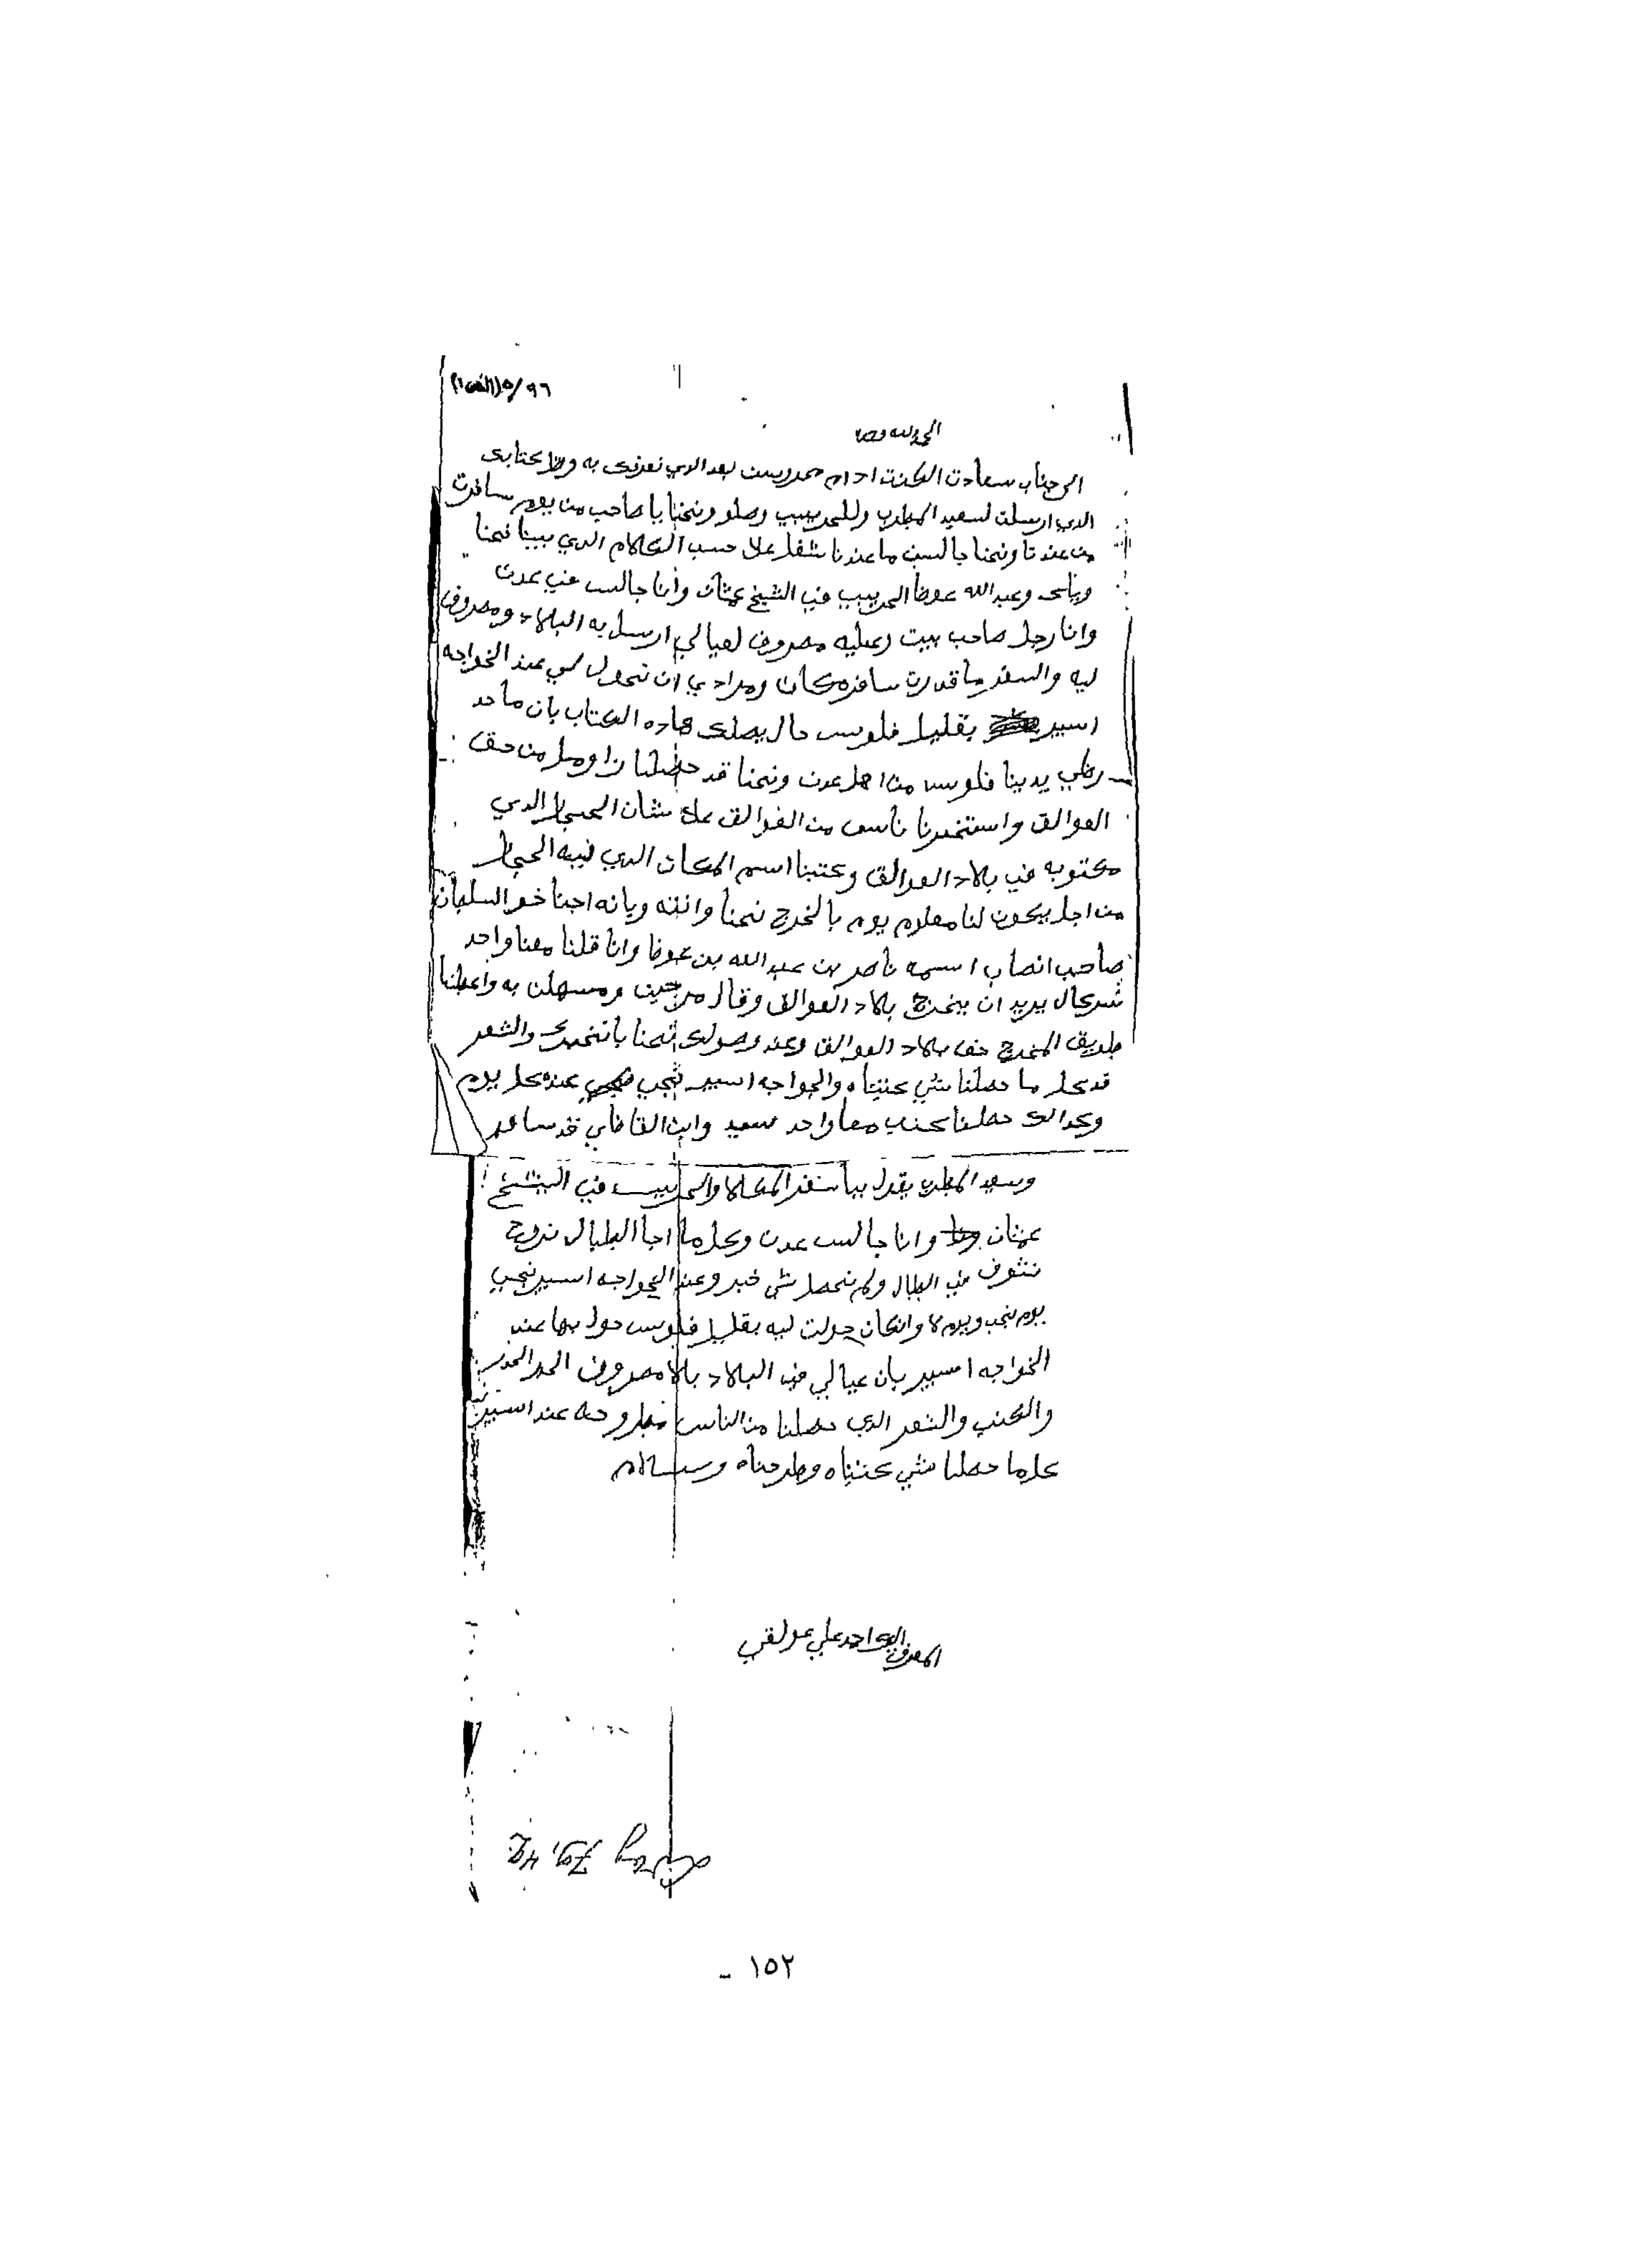 ٥/٩٦ (الف١)
الحمد لله وحده
الى جناب سعادت الكنت ادام محروس بعد الدي نعرفك به وصل كتابك
الدي ارسلت لسعيد المطرب وللحريبيب وصلو ونحنا يا صاحب من يوم سافرت
من عندنا ونحنا جالسين ما عندنا شغل علا حسب الكلام الدي بيننا نحنا
وياك وعبدالله عوض الحريبيب في الشيخ عثمان وأنا جالس في عدن
وانا رجل صاحب بيت وعليه مصروف لعيالي ارسل به البلاد ومصروف
ليه والسفر ما قدرت سافر مكان ومرادي ان تحول لي عند الخواجه
اسير بقليل فلوس حال يصلك هاده الكتاب بان ما حد
رضي يدينا فلوس من اهل عدن ونحنا قد حصلنا زاومل من حق
العوالق واستخبرنا ناس من العوالق علا شان الحجار الدي
مكتوبه في بلاد العوالق وكتبنا اسم المكان الدي فيه الحجار
من اجل يكون لنا معلوم يوم بالخرج نحنا وانته وبانه اجنا خو السلطان
صاحب انصاب اسمه ناصر بن عبدالله بن عوض وانا قلنا معنا واحد
يريد ان يخرج بلاد العوالق وقال مرحبين ومسهلن به واعطنا
طريق المخرج حق بلاد العوالق وعند وصولك نحنا بانخبرك والشعر
قد كل ما حصلنا شي كتبناه والخواجه اسير نجي عنده كل يوم
وكدالك حصلنا كتب معا واحد سعيد وابن القاضي قد سافر
وسعيد المطرب يقول بيا سفر المكلا والحريبيب في الشيخ
عثمان وانا جالس عدن وكل ما اجا الطبال نروح
نشوف في الطبال ولم نحصل شي خبر وعند الخواجه اسير نجي
يوم نجي ويوم لا وانكان حولت ليه بقليل فلوس حول بها عند
الخواجه اسير بان عيالي في البلاد بلا مصروف
والكتب والشعر الدي حصلنا من الناس مطروحه عند اسير
كل ما حصلنا شي كتبناه وطرحناه وسلام
المعرف لك احمد علي عولقي
- ١٥٢